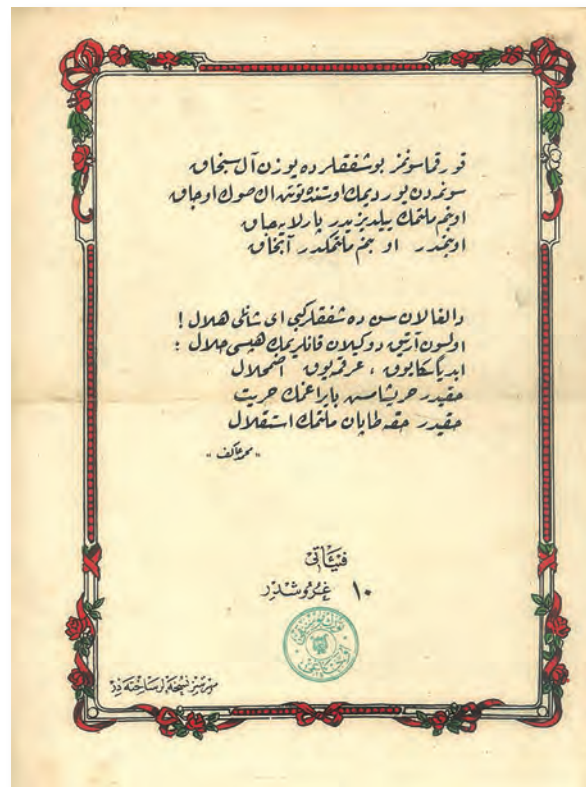 قورقما سونمز بو شفقلرده یوزن آل سنجاق
سونمدن یوردیمك اوستنده توتن اڭ صوڭ اوجاق
او بنم ملتمك ییلدیزیدر پارلایه جاق
او بنمدر او بنم ملتمكدر آنجاق
دالغالان سن ده شفقلر كبی ای شانلی هلال !
اولسون آرتیق دوكیلان قانلریمك هپسی حلال ؛
ابدیاً سكا یوق ، عرقمه یوق اضمحلال
حقیدر حر یشامش بایراغمك حریت
حقیدر حقه طاپان ملتمك استقلال
« محمد عاكف »
فیئاتی
١٠ غروشدر
مهرسز نسخه لر ساخته در